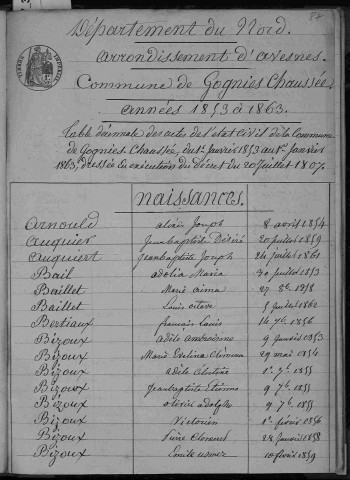 84
Département du Nord.
Arrondissement d'Avesnes.
Commune de Gognies Chaussée
Années 1853 à 1863.
Table décennale des actes de l'état civil de la Commune
de Gognies Chaussée, du 1er Janvier 1853 au 1er Janvier
1863, dressée en exécution du décret du 20 Juillet 1807.
Naissances.
Arnould alexis Joseph 8 avril 1854
Auquier Jean baptiste Désiré 20 juillet 1859
Auquiert Jeanbaptiste Joseph 24 juillet 1861
Bail adélia Maria 30 juillet 1853
Baillet Marie 27 1858
Baillet Louis octave 5 juillet 1862
Bertiaux françois Louis 14 7bre 1856
Bizoux adèle ambroisine 9 janvier 1853
Bizoux Marie Evelina Clémence 29 mai 1854
Bizoux adèle Célestine 1er 7bre 1855
Bizoux Jeanbaptiste Etienne 9 7bre 1855
Bizoux adolphe 9 7bre 1855
Bizoux Victorien 1er février 1856
Bizoux Florent 28 Janvier 1858
Bizoux Emile 10 février 1859